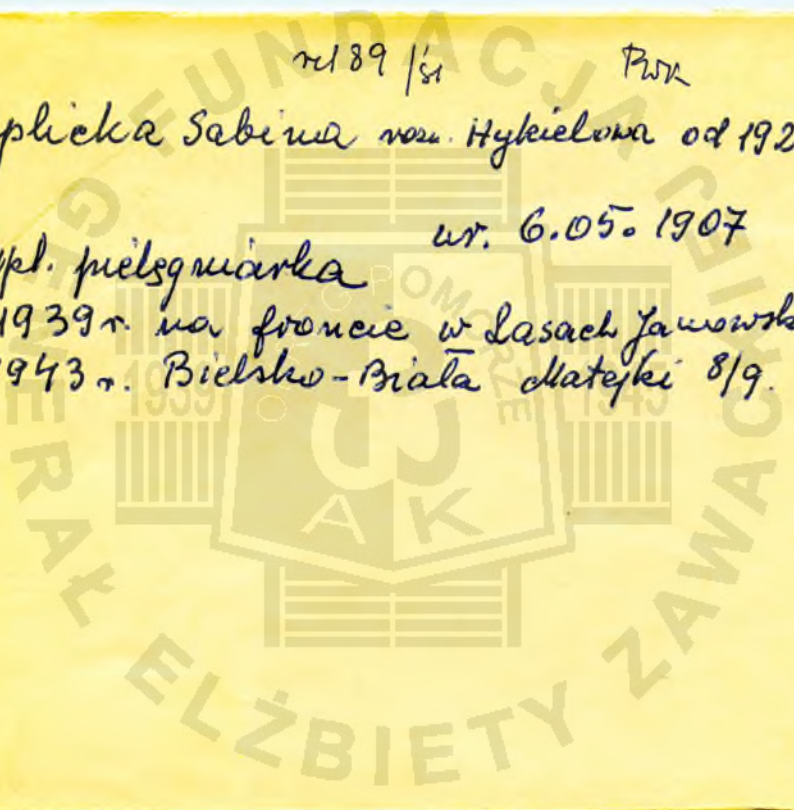 rel 89 /śl PWK
plicka Sabina roz. Hykielowa od 192
ur. 6.05.1907
pl. pielęgniarka
1939r. na froncie w Lasach Janowsk
1943r. Bielsko-Biała Matejki 8/9.
FUNDACJA GENERAŁ ELŻBIETY ZAWACKIEJ
POMORZE
1939 1945
AK